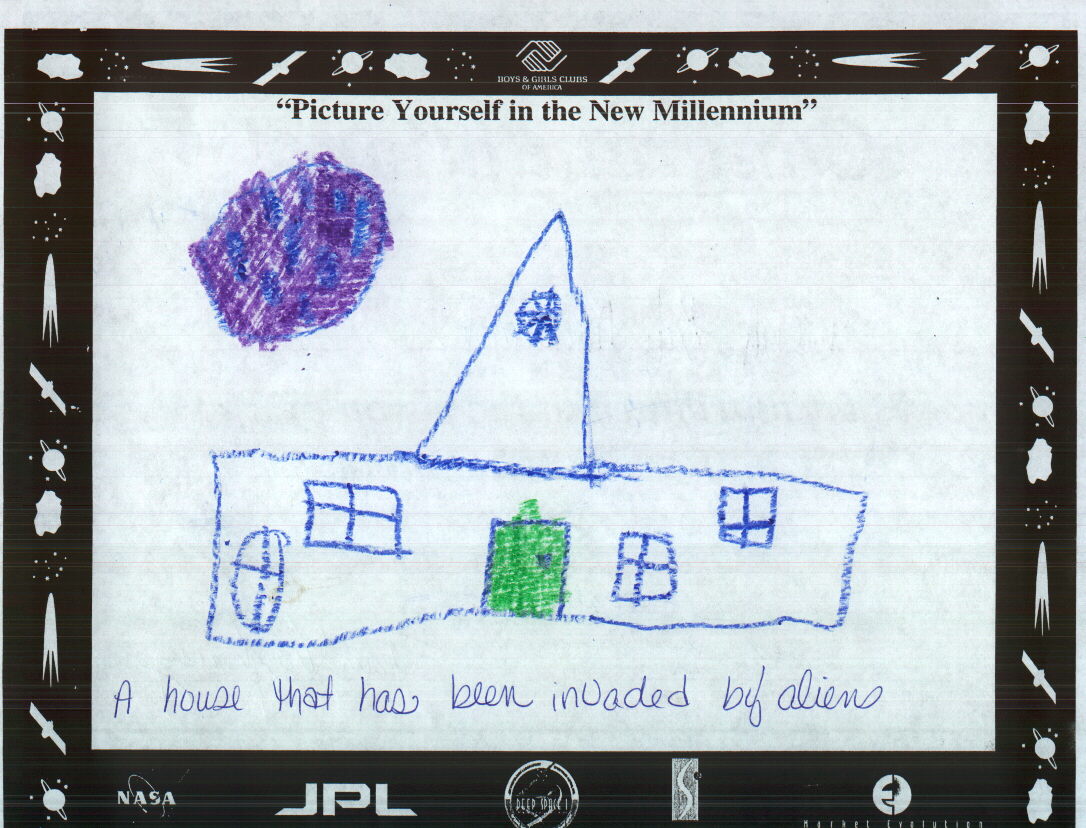 BOYS & GIRLS CLUBS
OF AMERICA
“Picture Yourself in the New Millennium”
A house that has been invaded by aliens
NASA
JPL
DEEP SPACE 1
Market Evolution